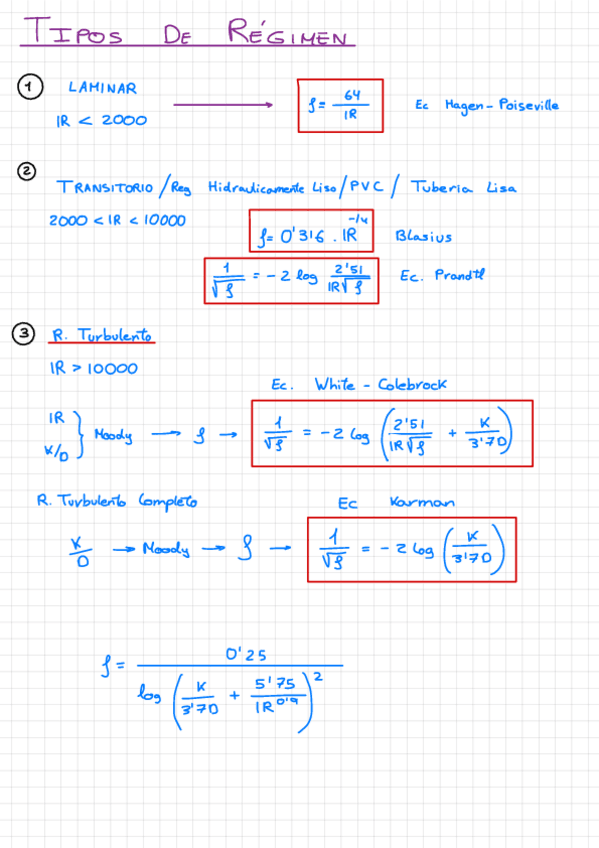 TIPOS DE RÉGIMEN
① LAMINAR
IR < 2000 → f = 64/IR Ec Hagen-Poiseville
②
TRANSITORIO/Reg Hidraulicamente Liso/PVC/ Tuberia Lisa
2000 < IR < 10000
f = 0'316 . IR^(-1/4) Blasius
1/√f = -2 log 2'51/(IR√f) Ec. Prandtl
③ R. Turbulento
IR > 10000
Ec. White - Colebrock
IR
K/D } Moody → f → 1/√f = -2 log (2'51/(IR√f) + K/3'7D)
R. Turbulento Completo Ec Karman
K/D → Moody → f → 1/√f = -2 log (K/3'7D)
f = 0'25 / log (K/3'7D + 5'75/IR^0'9)^2